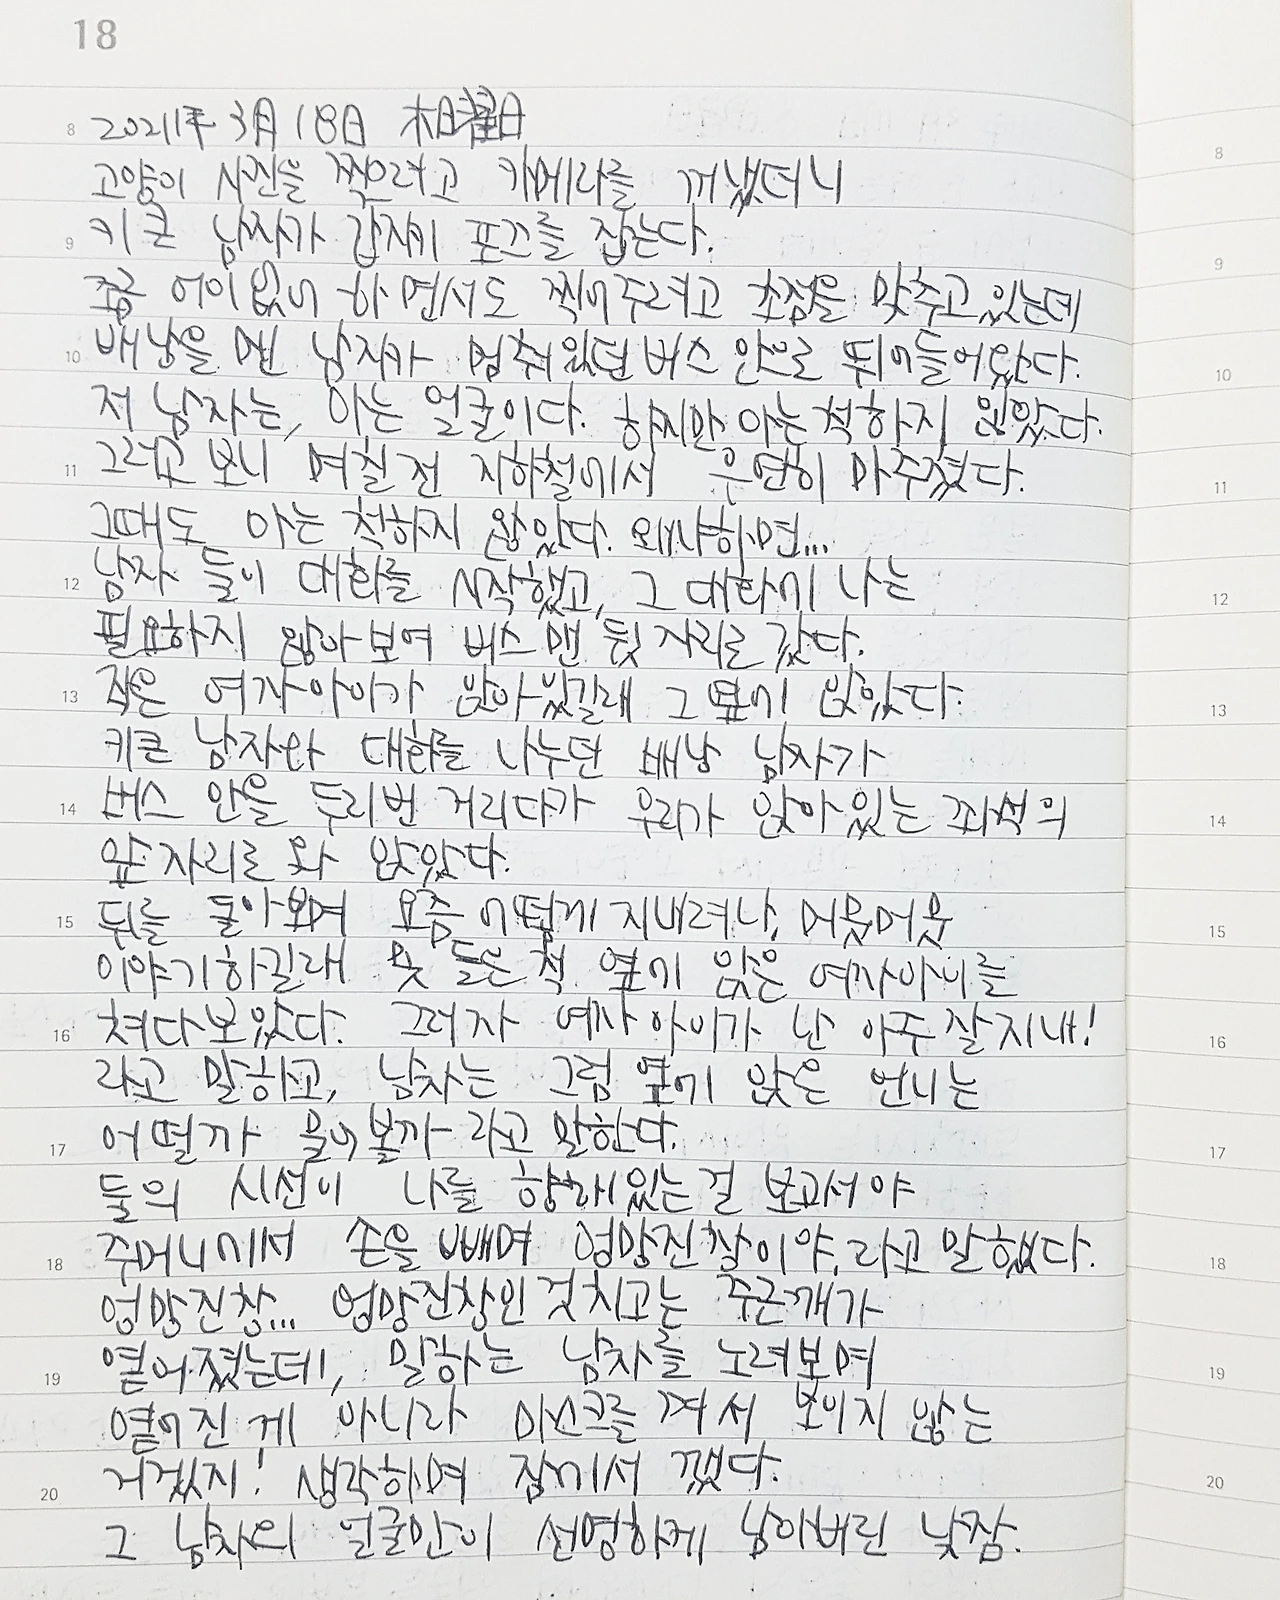 18
8 2021年 3月 18日 木曜日
고양이 사진을 찍으려고 카메라를 꺼냈더니
9 키큰 남자가 갑자기 포즈를 잡는다.
좀 어이없어 하면서도 찍어주려고 초점을 맞추고있는데
10 배낭을 멘 남자가 멈춰있던 버스 안으로 뛰어들어왔다.
저 남자는, 아는 얼굴이다. 하지만 아는척하지 않았다.
11 그러고 보니 며칠전 지하철에서 우연히 마주쳤다.
그때도 아는 척하지 않았다. 왜냐하면...
12 남자 둘이 대화를 시작했고, 그 대화에 나는
필요하지 않아보여 버스 맨 뒷 자리로 갔다.
13 작은 여자아이가 앉아있길래 그 옆에 앉았다.
키큰 남자와 대화를 나누던 배낭 남자가
14 버스 안을 두리번 거리다가 우리가 앉아있는 좌석의
앞자리로 와 앉았다.
15 뒤를 돌아보며 요즘 어떻게 지내려나, 머뭇머뭇
이야기하길래 못 들은 척 옆에 앉은 여자아이를
16 쳐다보았다. 그러자 여자아이가 난 아주 잘지내!
라고 말하고, 남자는 그럼 옆에 앉은 언니는
17 어떨까 물어볼까 라고 말한다.
둘의 시선이 나를 향해있는걸 보고서야
18 주머니에서 손을 빼며 엉망진창이야, 라고 말했다.
엉망진창... 엉망진창인 것치고는 주근깨가
19 옅어졌는데, 말하는 남자를 노려보며
옅어진 게 아니라 마스크를 껴서 보이지 않는
20 거겠지! 생각하며 잠에서 깼다.
그 남자의 얼굴만이 선명하게 남아버린 낮잠.
8
9
10
11
12
13
14
15
16
17
18
19
20